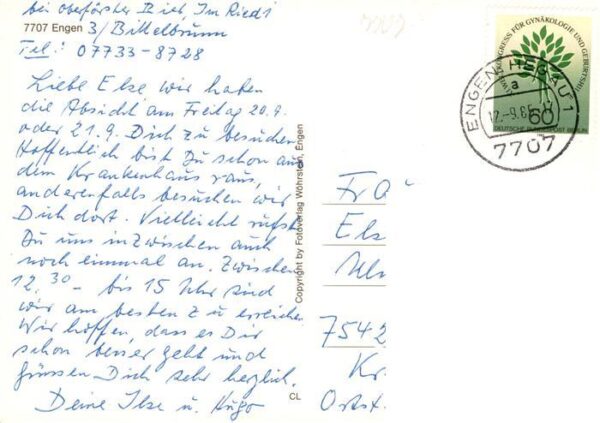 bei oberförster Bieh, Im Ried 1
7707 Engen 3/Bittelbrunn
Tel.: 07733-8728
Liebe Else wir haben
die Absicht am Freitag 20.9.
oder 21.9. Dich zu besuchen
Hoffentlich bist Du schon aus
dem Krankenhaus raus,
anderenfalls besuchen wir
Dich dort. Vielleicht rufst
Du uns inzwischen auch
noch einmal an. Zwischen
12.30 - bis 15 Uhr sind
wir am besten zu erreichen
Wir hoffen, dass es Dir
schon besser geht und
grüssen Dich sehr herzlich.
Deine Ilse u. Hugo
CL
Copyright by Fotoverlag Wöhrstein, Engen
KONGRESS FÜR GYNÄKOLOGIE UND GEBURTSHI
60
DEUTSCHE BUNDESPOST BERLIN
ENGEN, HEGAU 1
a
17.-9.85
7707
Fr
Els
7542
Kr.
Ortst.